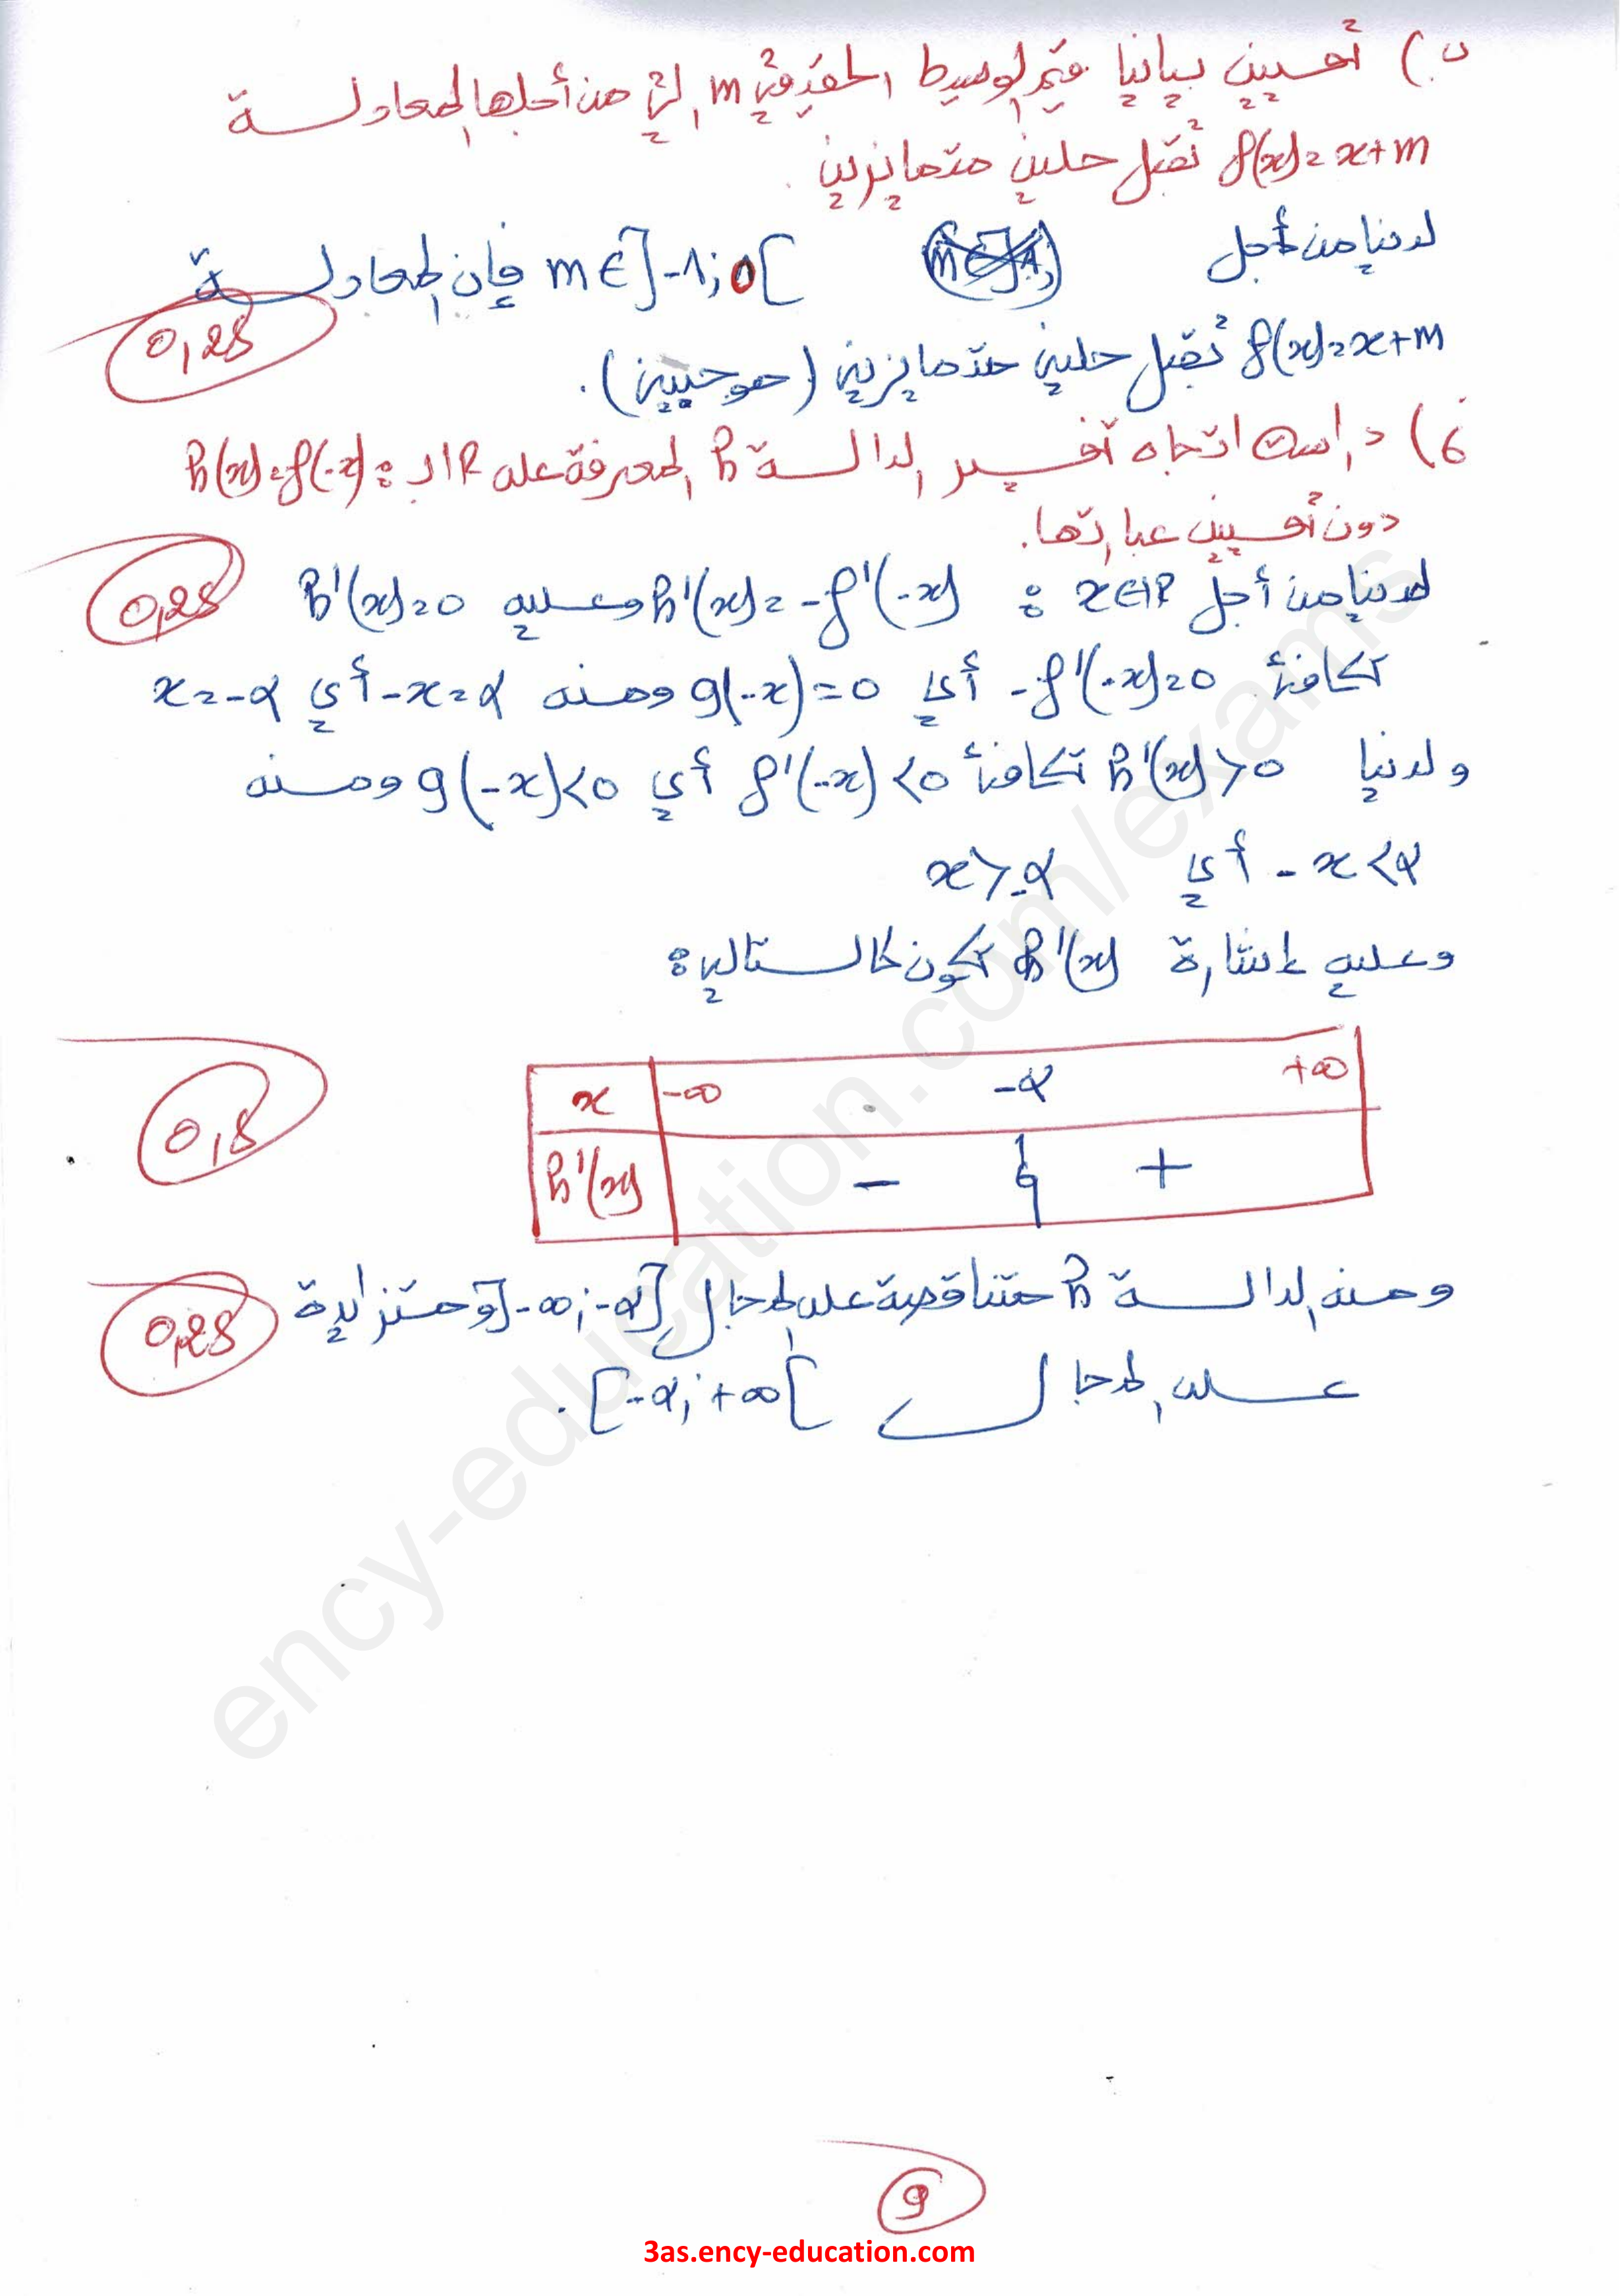 ب) تعيين بيانيا قيم الوسيط الحقيقي m التي من أجلها المعادلة
f(x)=x+m تقبل حلين متمايزين.
لدينا من أجل m∈]-1;0[ فإن المعادلة
0,25
f(x)=x+m تقبل حلين متمايزين (موجبين).
6) دراسة اتجاه تغير الدالة h المعرفة على R بـ: h(x)=f(-x)
دون تعيين عبارتها.
لدينا من أجل x∈R : h'(x)=-f'(-x) وعليه h'(x)=0
0,25
تكافئ -f'(-x)=0 أي g(-x)=0 ومنه -x=α أي x=-α
ولدينا h'(x)>0 تكافئ f'(-x)<0 أي g(-x)<0 ومنه
-x<α أي x>-α
وعليه إشارة h'(x) تكون كالتالية:
x -∞ -α +∞
0,5
h'(x) - 0 +
ومنه الدالة h متناقصة على المجال ]-∞;-α] ومتزايدة
0,25
على المجال [-α;+∞[.
9
3as.ency-education.com
ency-education.com/exams